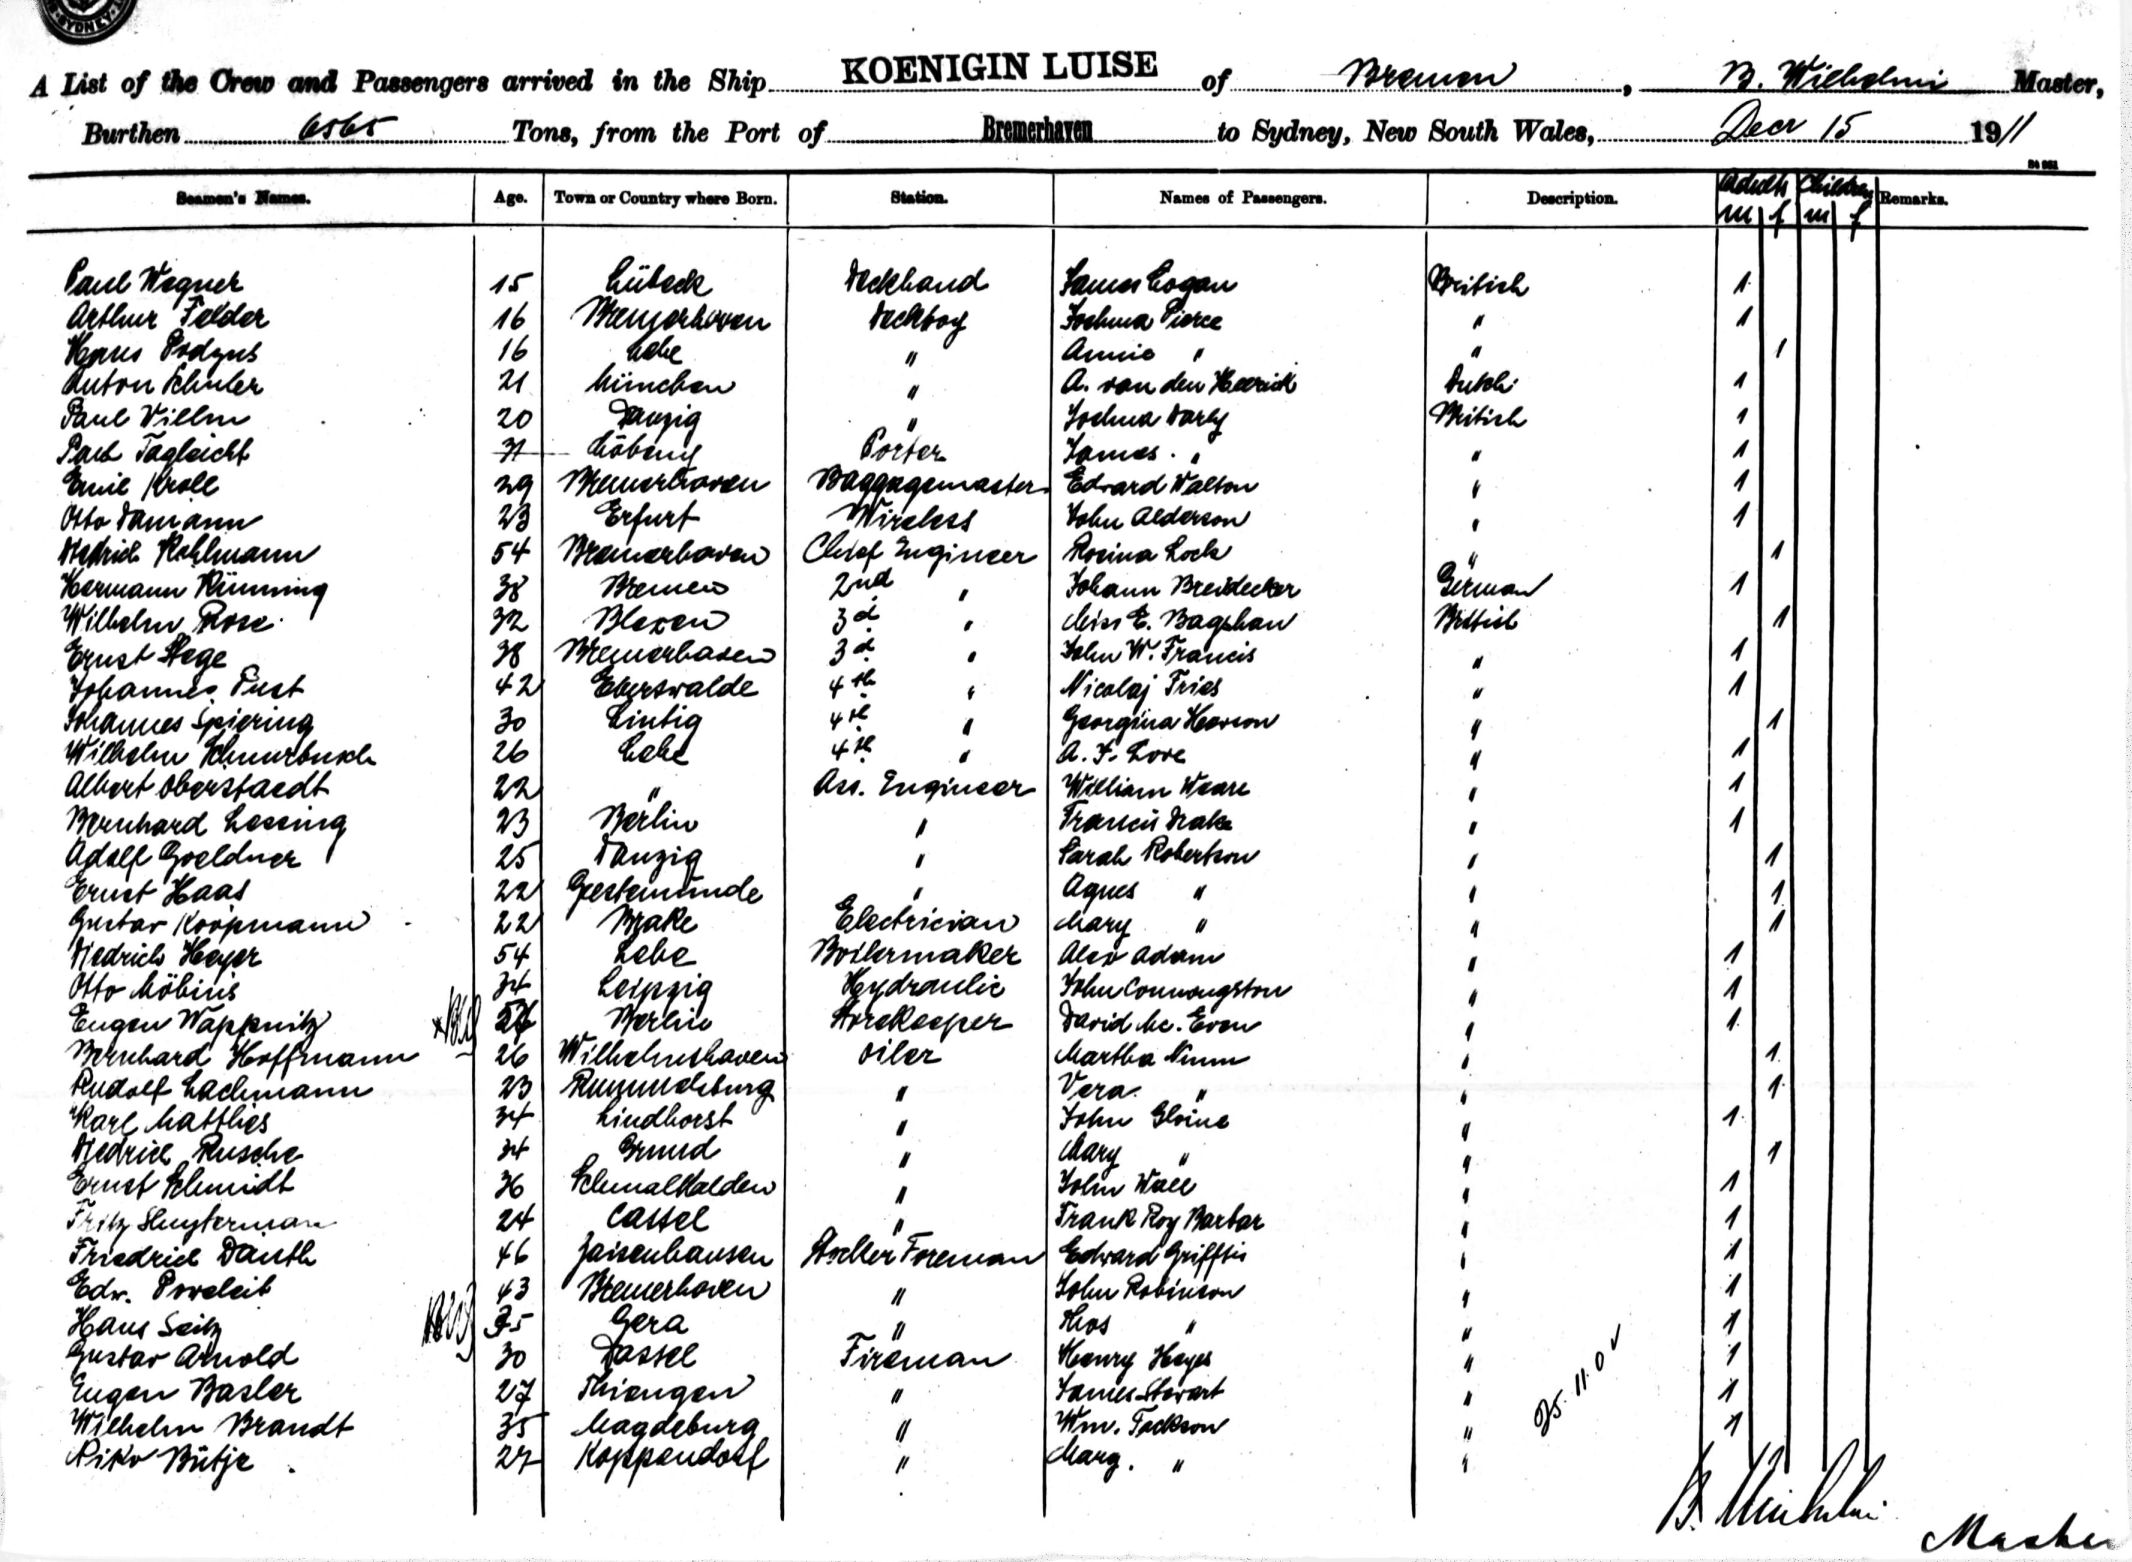 SYDNEY
A List of the Crew and Passengers arrived in the Ship KOENIGIN LUISE of Bremen, B. Wilhelmi Master,
Burthen 6565 Tons, from the Port of Bremerhaven to Sydney, New South Wales, Decr 15 1911
Seamen's Names. Age. Town or Country where Born. Station. Names of Passengers. Description. Adults Children Remarks.
m f m f
Paul Wegner 15 Lübeck Deckhand James Logan British 1
Arthur Felder 16 Bremerhaven Deckboy Joshua Pierce " 1
Hans Prodzus 16 Lehe " Annie " " 1
Anton Schuler 21 München " A. van den Heerick Dutch 1
Paul Villm 20 Danzig " Joshua Darly British 1
Paul Tagleicht 31 Porter James " " 1
Emil Kroll 29 Bremerhaven Baggagemaster Edward Walton " 1
Otto Damann 23 Erfurt Wireless John Alderson " 1
Diedrich Kohlmann 54 Bremerhaven Chief Engineer Rosina Lock " 1
Hermann Rünning 38 Bremen 2nd " Johann Breidecker German 1
Wilhelm Rose 32 Blexen 3d " Miss E. Bagshaw British 1
Ernst Stege 38 Bremerhaven 3d " John W. Francis " 1
Johannes Pust 42 Eberswalde 4th " Nicolaj Fries " 1
Johannes Spiering 30 Lintig 4th " Georgina Hewson " 1
Wilhelm Schnurbusch 26 Lehe 4th " A. F. Love " 1
Albert Oberstaedt 22 " Ass. Engineer William Weare " 1
Bernhard Lessing 23 Berlin " Francis Drake " 1
Adolf Goeldner 25 Danzig " Sarah Robertson " 1
Ernst Haas 22 Geestemünde " Agnes " " 1
Gustav Koopmann 22 Brake Electrician Mary " " 1
Diedrich Heyer 54 Lehe Boilermaker Alex Adam " 1
Otto Möbius 34 Leipzig Hydraulic John Connongston " 1
Eugen Wappnitz Berlin Storekeeper David Mc. Even " 1
Bernhard Hoffmann 26 Wilhelmshaven Oiler Martha Nunn " 1
Rudolf Lachmann 23 Rummelsburg " Vera " " 1
Karl Matthies 34 Lindhorst " John Gloine " 1
Diedrich Rusche 34 Grund " Mary " " 1
Ernst Schmidt 36 Schmalkalden " John Wall " 1
Fritz Sluyterman 24 Cassel " Frank Roy Barbar " 1
Friedrich Däuth 46 Zaisenhausen Stoker Foreman Edward Grifftis " 1
Edw. Poweleit 43 Bremerhaven " John Robinson " 1
Hans Seitz 35 Gera " Thos " " 1
Gustav Arnold 30 Dassel Fireman Henry Heyes " 1
Eugen Basler 27 Thiengen " James Stewart " 1
Wilhelm Brandt 35 Magdeburg " Wm. Jackson " 1
Riko Bütje 27 Koppendorf " Mary. " "
B. Wilhelmi
Master